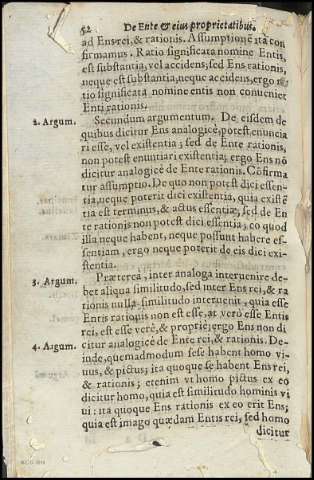 52 De Ente & eius proprietatibus.
ad Ens rei, & rationis. Assumptionē ita con
firmamus. Ratio significata nomine Entis,
est substantia, vel accidens; sed Ens rationis,
neque est substantia, neque accidens, ergo ra
tio significata nomine entis non conuenit
Enti rationis.
2. Argum.
Secundum argumentum. De eisdem de
quibus dicitur Ens analogicè, potest enuncia
ri esse, vel existentia; sed de Ente rationis,
non potest enuntiari existentia; ergo Ens nō
dicitur analogicè de Ente rationis. Cōfirma
tur assumptio. De quo non potest dici essen-
tia, neque poterit dici existentia, quia existē
tia est terminus, & actus essentiæ, sed de En
te rationis non potest dici essentia; eo quod
illa neque habent, neque possunt habere es-
sentiam, ergo neque poterit de eis dici exi-
stentia.
3. Argum.
Præterea, inter analoga interuenire de-
bet aliqua similitudo, sed inter Ens rei, & ra
tionis nulla similitudo interuenit, quia esse
Entis rationis non est esse, at verò esse Entis
rei, est esse verè, & propriè; ergo Ens non di
citur analogicè de Ente rei, & rationis. De-
4. Argum.
inde, quemadmodum sese habent homo vi-
uus, & pictus; ita quoque se habent Ens rei,
& rationis; etenim vt homo pictus ex eo
dicitur homo, quia est similitudo hominis vi
ui: ita quoque Ens rationis ex eo erit Ens;
quia est imago quædam Entis rei, sed homo
dicitur